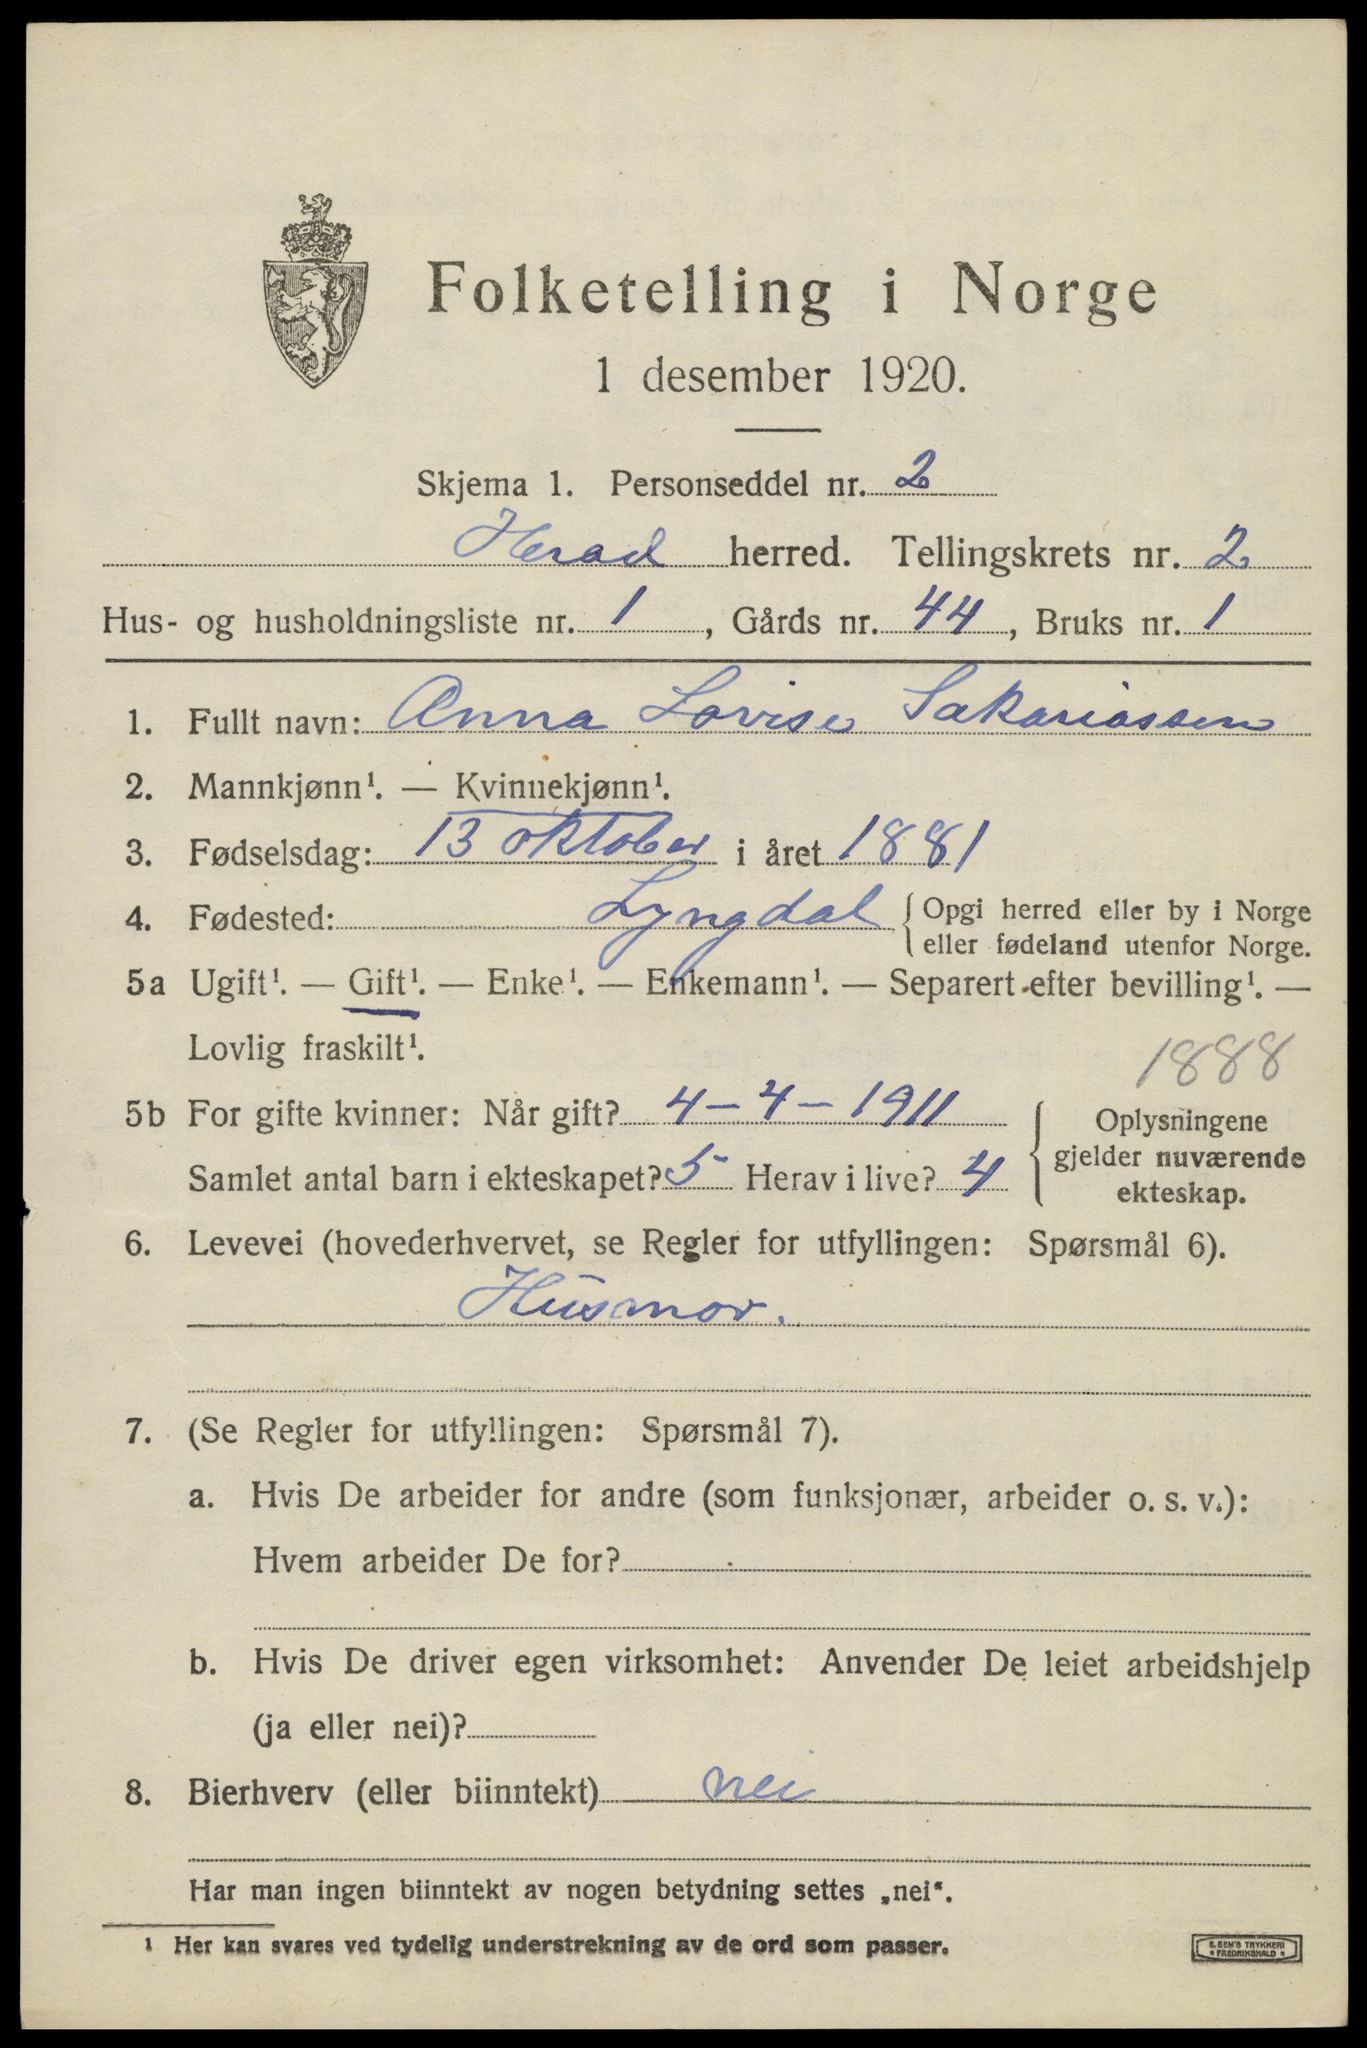 Folketelling i Norge
1 desember 1920.
Skjema 1. Personseddel nr. 2
Herad herred. Tellingskrets nr. 2
Hus- og husholdningsliste nr. 1, Gårds nr. 44, Bruks nr. 1
1. Fullt navn: Anna Lovise Sakariassen
2. Mannkjønn¹. — Kvinnekjønn¹.
3. Fødselsdag: 13 oktober i året 1881
4. Fødested: Lyngdal { Opgi herred eller by i Norge
eller fødeland utenfor Norge.
5a Ugift¹. — Gift¹. — Enke¹. — Enkemann¹. — Separert efter bevilling¹. —
Lovlig fraskilt¹.
1888
5b For gifte kvinner: Når gift? 4-4-1911
Samlet antal barn i ekteskapet? 5 Herav i live? 4
{ Oplysningene
gjelder nuværende
ekteskap.
6. Levevei (hovederhvervet, se Regler for utfyllingen: Spørsmål 6).
Husmor.
7. (Se Regler for utfyllingen: Spørsmål 7).
a. Hvis De arbeider for andre (som funksjonær, arbeider o. s. v.):
Hvem arbeider De for?
b. Hvis De driver egen virksomhet: Anvender De leiet arbeidshjelp
(ja eller nei)?
8. Bierhverv (eller biinntekt) nei
Har man ingen biinntekt av nogen betydning settes „nei“.
¹ Her kan svares ved tydelig understrekning av de ord som passer.
E. SEM'S TRYKKERI
* FREDRIKSHALD *